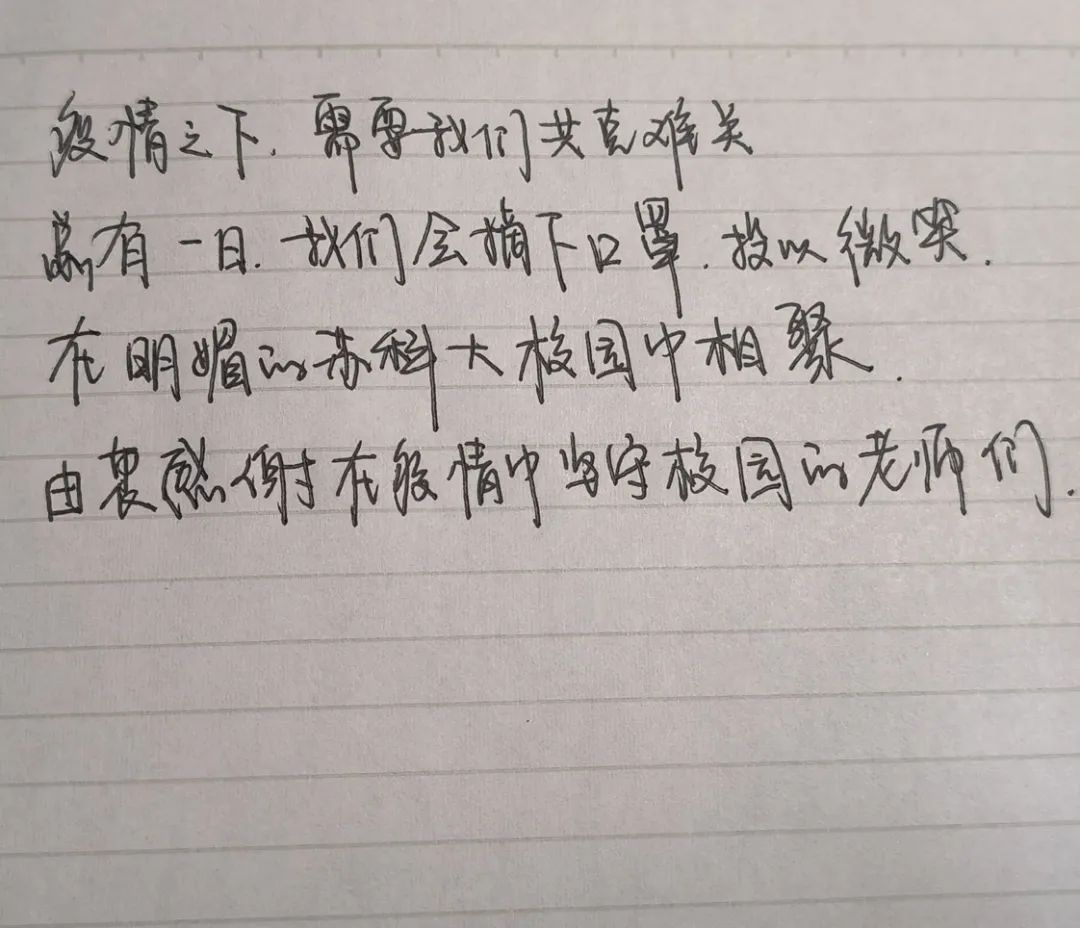 疫情之下.需要我们共克难关
总有一日.我们会摘下口罩.投以微笑.
在明媚的苏科大校园中相聚.
由衷感谢在疫情中坚守校园的老师们.